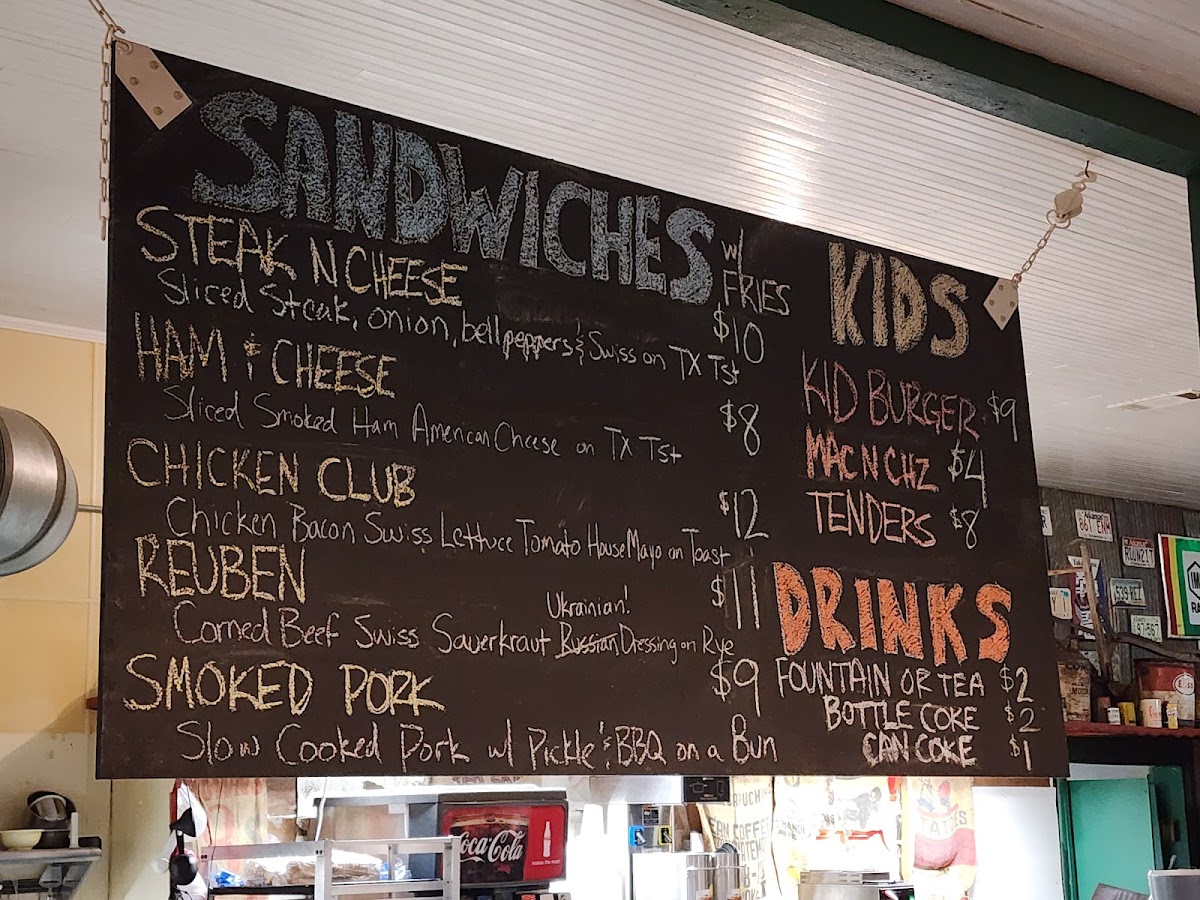 SANDWICHES w/ FRIES
STEAK N CHEESE $10
Sliced Steak, onion, bell peppers & Swiss on TX Tst
HAM & CHEESE $8
Sliced Smoked Ham American Cheese on TX Tst
CHICKEN CLUB $12
Chicken Bacon Swiss Lettuce Tomato House Mayo on Toast
REUBEN $11
Ukrainian!
Corned Beef Swiss Sauerkraut Russian Dressing on Rye
SMOKED PORK $9
Slow Cooked Pork w/ Pickle & BBQ on a Bun
KIDS
KID BURGER $9
MAC N CHZ $4
TENDERS $8
DRINKS
FOUNTAIN OR TEA $2
BOTTLE COKE $2
CAN COKE $1
Coca-Cola